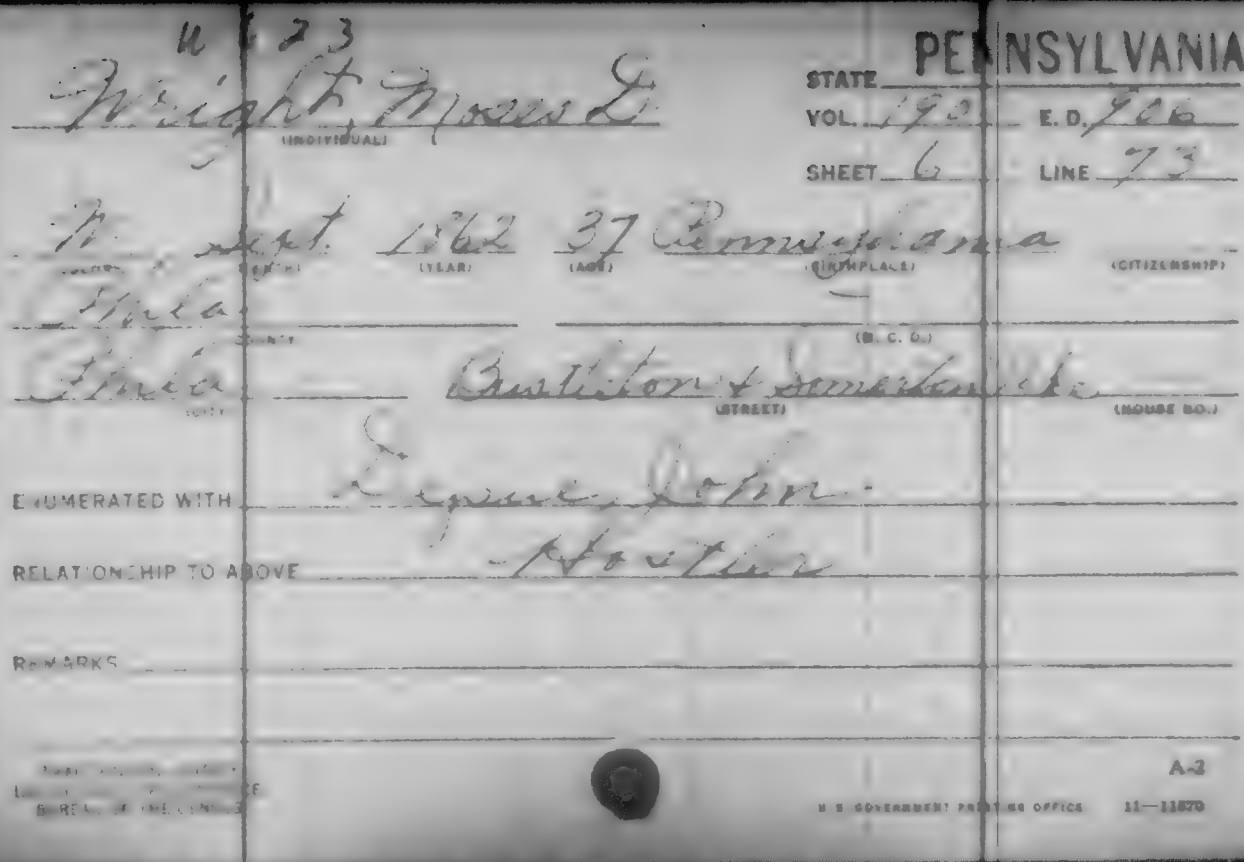 W 623
PENNSYLVANIA
STATE
Wright, Moses D
(INDIVIDUAL)
VOL. E.D. 906
SHEET 6 LINE 73
Sept. 1862 37 Pennsylvania
(MONTH) (YEAR) (AGE) (BIRTHPLACE) (CITIZENSHIP)
Phila
COUNTY (M. C. D.)
Phila Bustleton & Somerton Pike
(CITY) (STREET) (HOUSE NO.)
ENUMERATED WITH John
RELATIONSHIP TO ABOVE Hostler
REMARKS
BUREAU OF THE CENSUS
A-2
U S GOVERNMENT PRINTING OFFICE 11—11870